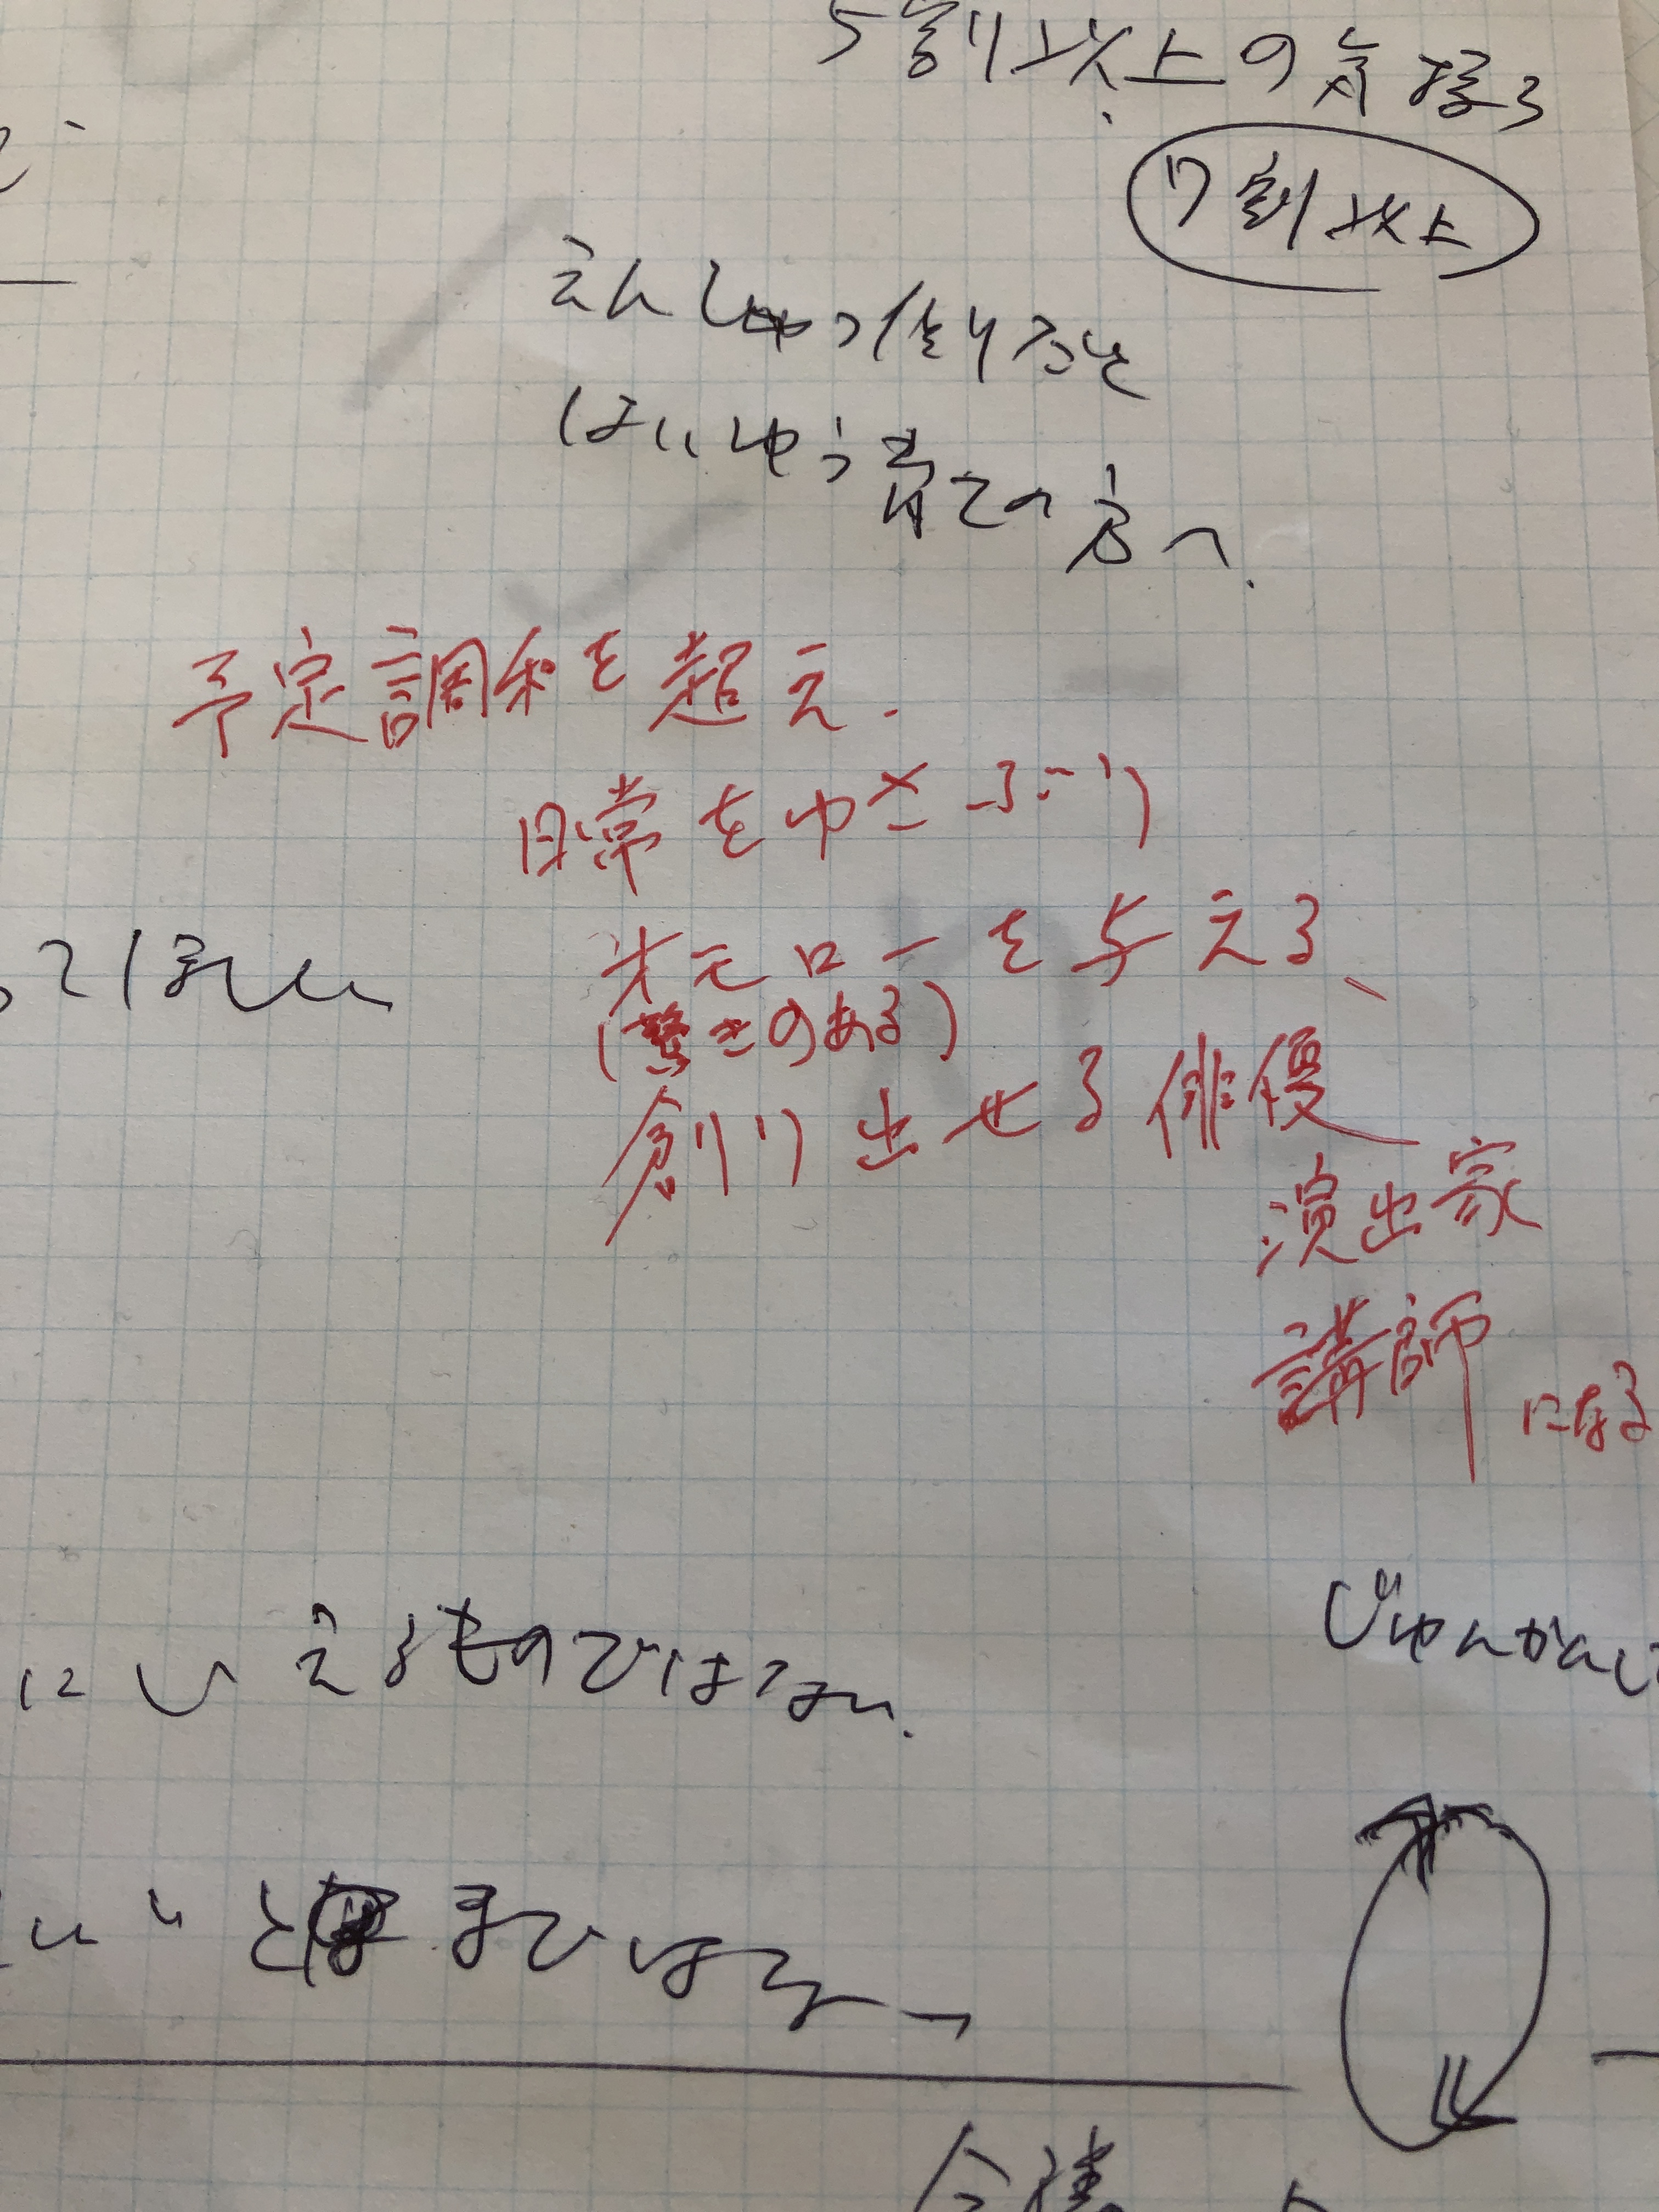 5割以上の
7割以上
えんしゅつ創るを
はいゆう育ての方へ.
予定調和を超え.
日常をゆさぶり
オモローを与える、
(驚きのある)
創り出せる俳優
演出家
講師になる
ってほしい
じゅんかんして
にいえるものではない.